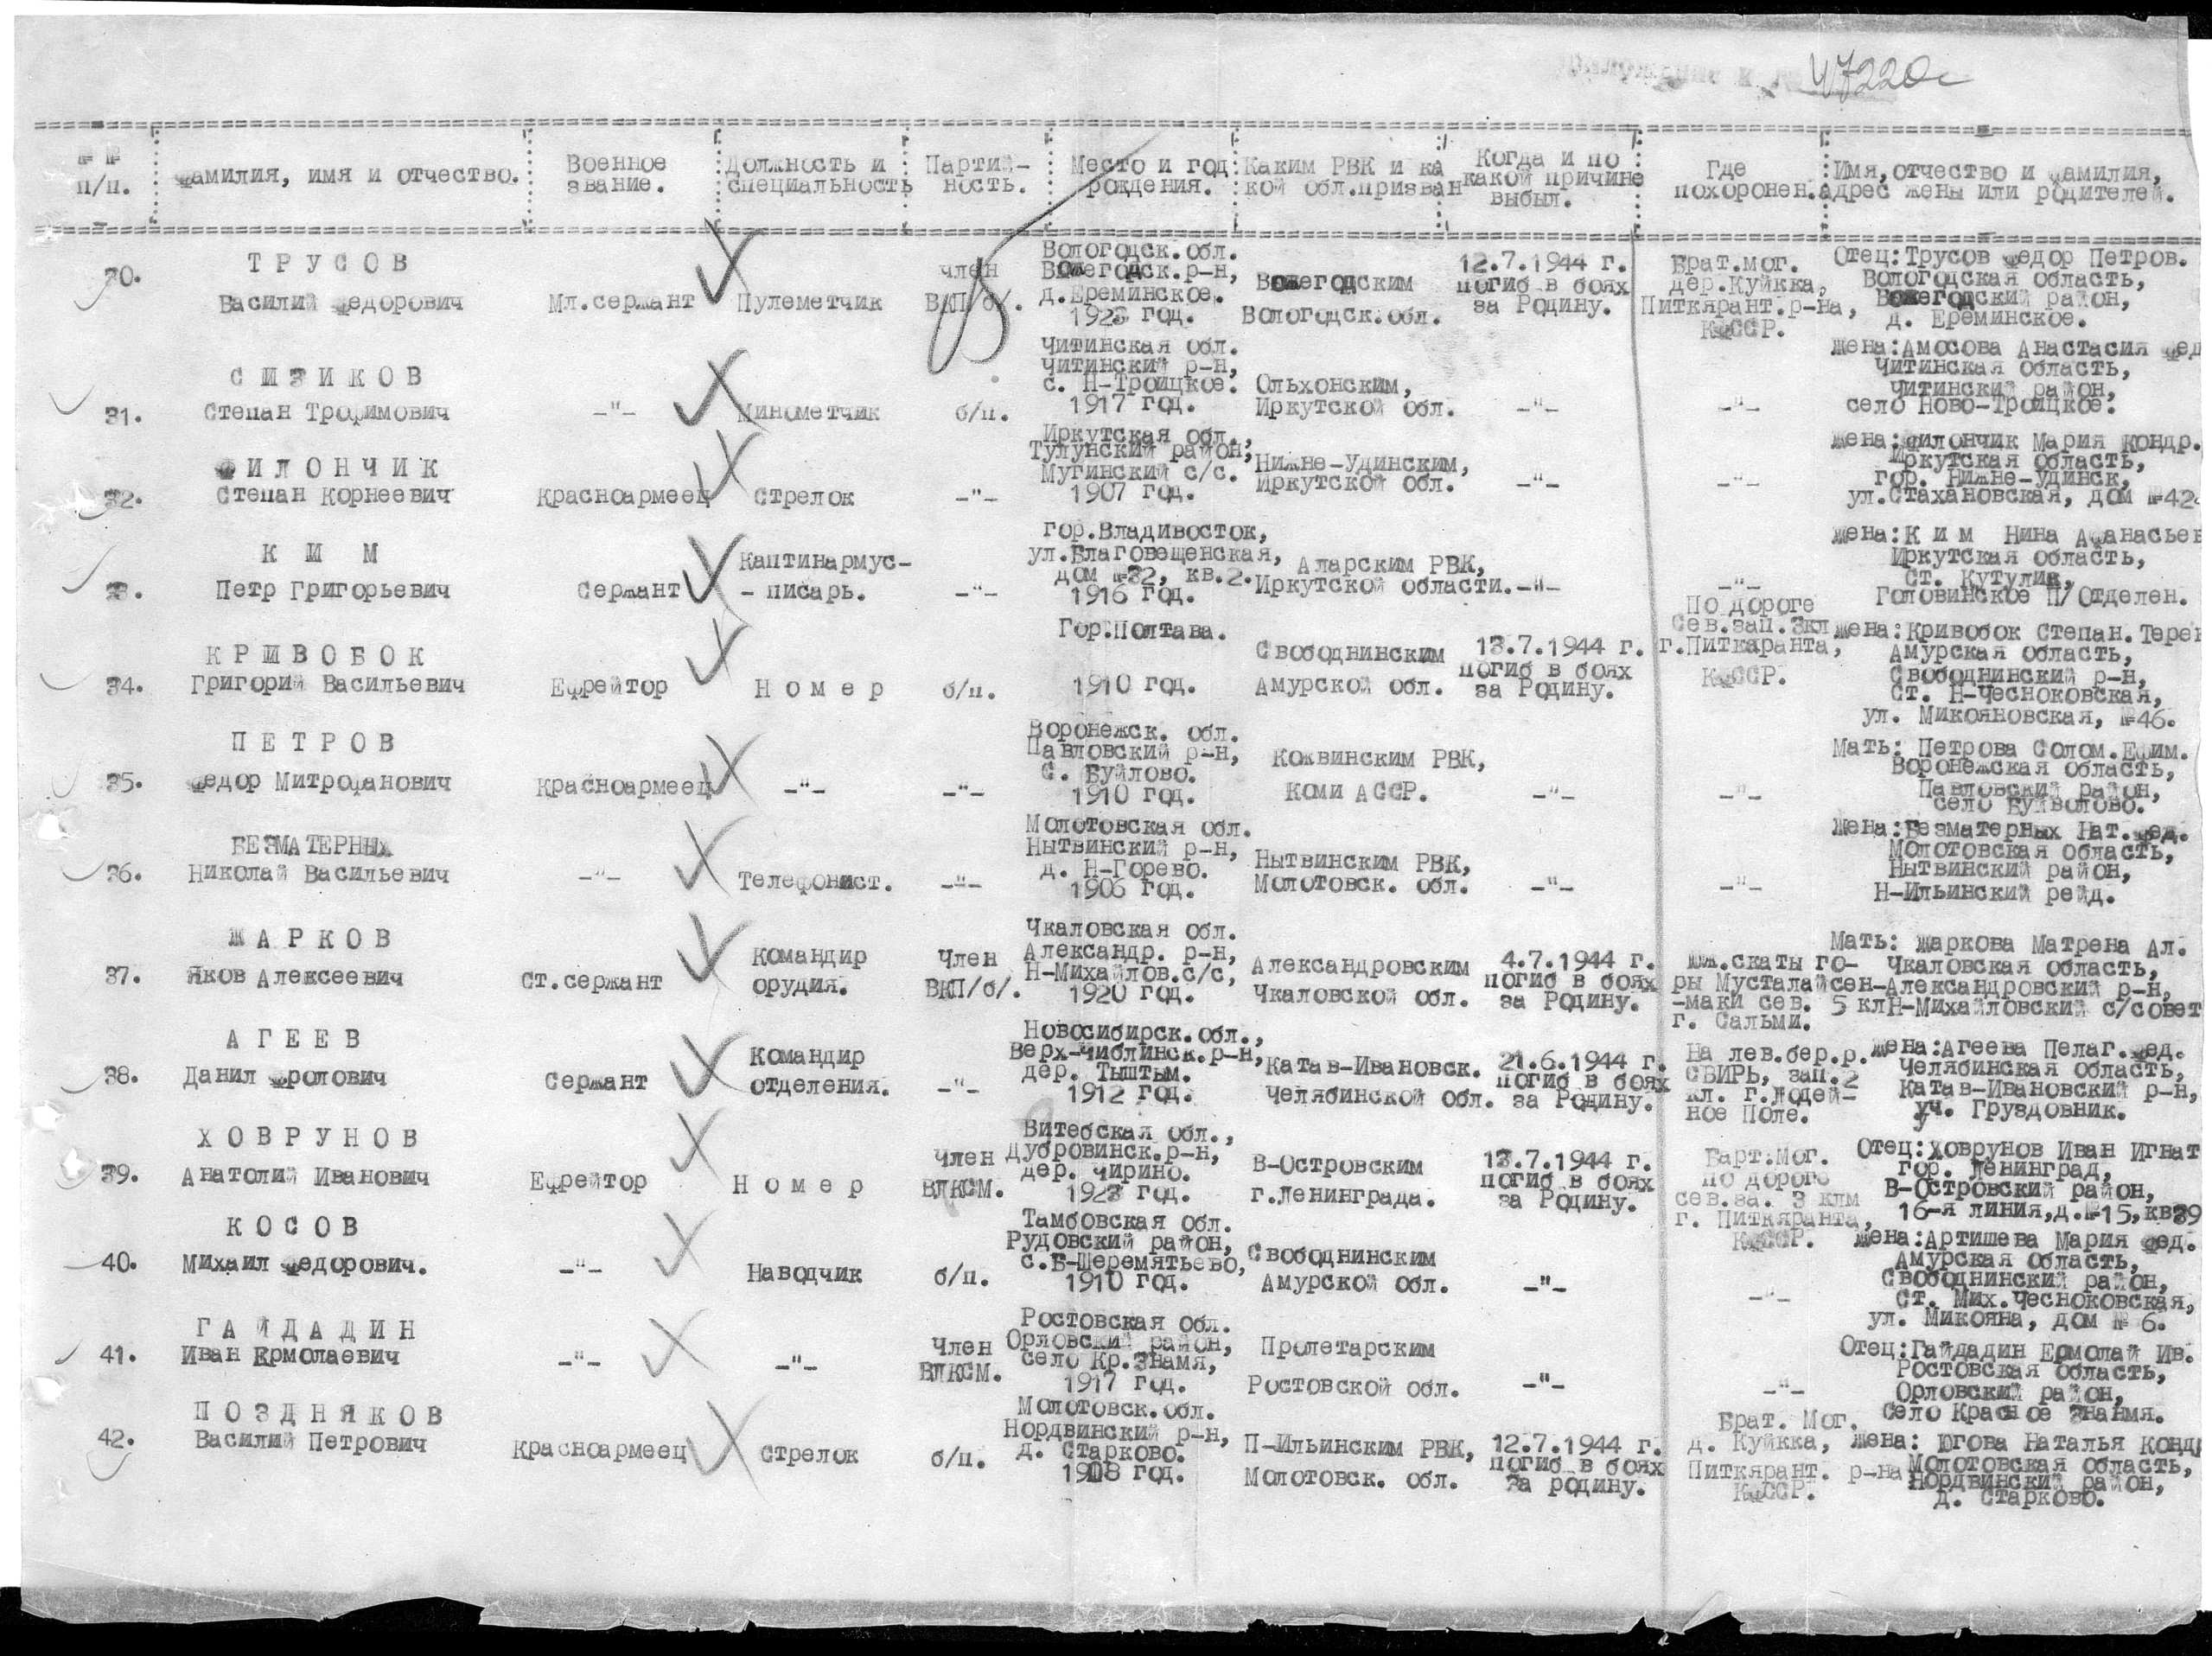 47220с
№ №
п/п.
Фамилия, имя и отчество.
Военное
звание.
Должность и
специальность
Партий-
ность.
Место и год
рождения.
Каким РВК и ка
кой обл.призван
Когда и по
какой причине
выбыл.
Где
похоронен.
Имя,отчество и фамилия,
адрес жены или родителей.
30.
ТРУСОВ
Василий Федорович
Мл.сержант
Пулеметчик
член
ВКП/б/.
Вологодск.обл.
Вожегодск.р-н,
д.Ереминское.
1923 год.
Вожегодским
Вологодск.обл.
12.7.1944 г.
погиб в боях
за Родину.
Брат.мог.
дер.Куйкка,
Питкярант.р-на,
КФССР.
Отец:Трусов Федор Петров.
Вологодская область,
Вожегодский район,
д. Ереминское.
31.
СИЗИКОВ
Степан Трофимович
-"-
Минометчик
б/п.
Читинская обл.
Читинский р-н,
с. Н-Троицкое.
1917 год.
Ольхонским,
Иркутской обл.
-"-
-"-
Жена:Амосова Анастасия Фед
Читинская область,
Читинский район,
село Ново-Троицкое.
32.
ФИЛОНЧИК
Степан Корнеевич
Красноармеец
Стрелок
-"-
Иркутская обл.,
Тулунский район,
Мугинский с/с.
1907 год.
Нижне-Удинским,
Иркутской обл.
-"-
-"-
Жена:Филончик Мария Кондр.
Иркутская область,
гор. Нижне-Удинск,
ул.Стахановская, дом №42.
33.
КИМ
Петр Григорьевич
Сержант
Каптинармус-
- писарь.
-"-
гор.Владивосток,
ул.Благовещенская,
дом №32, кв.2.
1916 год.
Аларским РВК,
Иркутской области.
-"-
-"-
Жена:К и м Нина Афанасьев
Иркутская область,
Ст. Кутулик,
Головинское П/Отделен.
34.
КРИВОБОК
Григорий Васильевич
Ефрейтор
Номер
б/п.
Гор.Полтава.
1910 год.
Свободнинским
Амурской обл.
13.7.1944 г.
погиб в боях
за Родину.
По дороге
Сев.зап.3кл
г.Питкаранта,
КФССР.
Жена:Кривобок Степан.Терен
Амурская область,
Свободнинский р-н,
Ст. Н-Чесноковская,
ул. Микояновская, №46.
35.
ПЕТРОВ
Федор Митрофанович
Красноармеец
-"-
-"-
Воронежск. обл.
Павловский р-н,
С. Буйлово.
1910 год.
Кожвинским РВК,
Коми АССР.
-"-
-"-
Мать: Петрова Солом.Ефим.
Воронежская область,
Павловский район,
село Буйволово.
36.
БЕЗМАТЕРНЫХ
Николай Васильевич
-"-
Телефонист.
-"-
Молотовская обл.
Нытвинский р-н,
д. Н-Горево.
1906 год.
Нытвинским РВК,
Молотовск. обл.
-"-
-"-
Жена:Безматерных Нат.Фед.
Молотовская область,
Нытвинский район,
Н-Ильинский рейд.
37.
ЖАРКОВ
Яков Алексеевич
Ст.сержант
Командир
орудия.
Член
ВКП/б/.
Чкаловская обл.
Александр. р-н,
Н-Михайлов.с/с,
1920 год.
Александровским
Чкаловской обл.
4.7.1944 г.
погиб в боях
за Родину.
Юж.скаты го-
ры Мусталайсен-
-маки сев. 5 кл
г. Сальми.
Мать: Жаркова Матрена Ал.
Чкаловская область,
Александровский р-н,
Н-Михайловский с/совет
38.
АГЕЕВ
Данил Фролович
Сержант
Командир
отделения.
-"-
Новосибирск.обл.,
Верх-Чиблинск.р-н,
дер. Тыштым.
1912 год.
Катав-Ивановск.
Челябинской обл.
21.6.1944 г.
погиб в боях
за Родину.
На лев.бер.р.
СВИРЬ, зап.2
кл. г.Лодей-
ное Поле.
Жена:Агеева Пелаг.Фед.
Челябинская область,
Катав-Ивановский р-н,
уч. Груздовник.
39.
ХОВРУНОВ
Анатолий Иванович
Ефрейтор
Номер
Член
ВЛКСМ.
Витебская обл.,
Дубровинск.р-н,
дер. Чирино.
1923 год.
В-Островским
г.Ленинграда.
13.7.1944 г.
погиб в боях
за Родину.
Барт.Мог.
по дороге
сев.за. 3 клм
г. Питкяранта,
КФССР.
Отец:Ховрунов Иван Игнат
гор. Ленинград,
В-Островский район,
16-я линия,д.№15,кв39
40.
КОСОВ
Михаил Федорович.
-"-
Наводчик
б/п.
Тамбовская обл.
Рудовский район,
с.Б-Шеремятьево,
1910 год.
Свободнинским
Амурской обл.
-"-
-"-
Жена:Артишева Мария Фед.
Амурская область,
Свободнинский район,
Ст. Мих.Чесноковская,
ул. Микояна, дом № 6.
41.
ГАЙДАДИН
Иван Ермолаевич
-"-
-"-
Член
ВЛКСМ.
Ростовская обл.
Орловский район,
село Кр.Знамя,
1917 год.
Пролетарским
Ростовской обл.
-"-
-"-
Отец:Гайдадин Ермолай Ив.
Ростовская область,
Орловский район,
Село Красное Знамя.
42.
ПОЗДНЯКОВ
Василий Петрович
Красноармеец
Стрелок
б/п.
Молотовск.обл.
Нордвинский р-н,
д. Старково.
1908 год.
П-Ильинским РВК,
Молотовск. обл.
12.7.1944 г.
погиб в боях
за родину.
Брат. Мог.
д. Куйкка,
Питкярант. р-на
КФССР.
Жена: Югова Наталья Конд
Молотовская область,
Нордвинский район,
д. Старково.